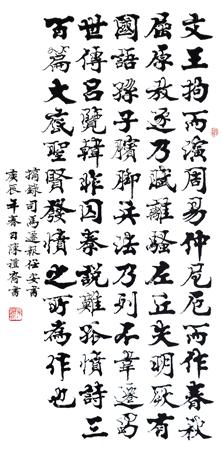 文王拘而演周易仲尼厄而作春秋
屈原放逐乃賦離騷左丘失明厥有
國語孫子臏脚兵法乃列不韋遷蜀
世傳呂覽韓非囚秦說難孤憤詩三
百篇大底聖賢發憤之所為作也
摘錄司馬遷報任安書
庚辰年春月陳禮齋書